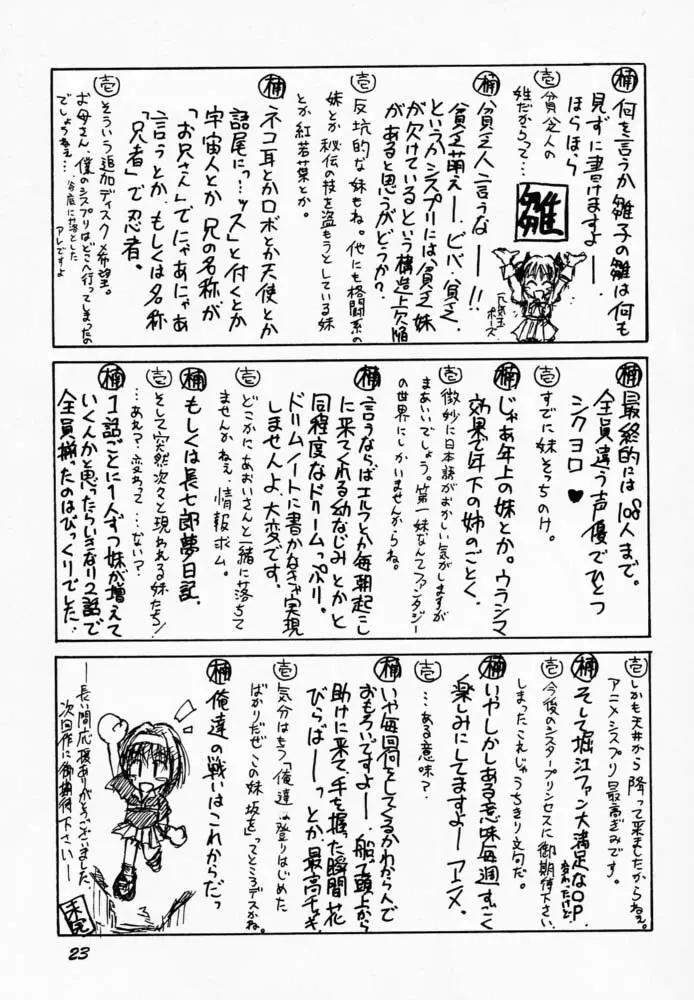 楠 何を言うか 雛子の雛は何も
見ずに書けますよー
ほらほら
壱 貧乏人の
姓だからって…
雛
元気玉
ポーズ
楠 貧乏人言うなーー!!
貧乏萌えー。ビバ、貧乏。
というかシスプリには、貧乏妹
が欠けているという構造上欠陥
があると思うがどうか?
壱 反抗的な妹もね。他にも格闘系の
妹とか秘伝の技を盗もうとしている妹
とか紅若葉とか。
楠 ネコ耳とかロボとか天使とか
語尾に「…ッス」と付くとか
宇宙人とか 兄の名称が
「お兄さん」でにゃあにゃあ
言うとか、もしくは名称
「兄者」で忍者。
壱 そういう追加ディスク〆希望。
お母さん、僕のシスプリはどこへ行ってしまったの
でしょうねえ…
谷底に落とした
アレですよ
楠 最終的には108人まで。
全員違う声優でひとつ
シクヨロ♥
壱 すでに妹そっちのけ。
楠 じゃあ年上の妹とか。ウラシマ
効果で年下の姉のごとく、
壱 微妙に日本語がおかしい気がしますが
まあいいでしょう。第一妹なんてファンタジー
の世界にしかいませんからね。
楠 言うならばエルフとか毎朝起こし
に来てくれる幼なじみとかと
同程度なドリームっぷり。
ドリムノートに書かなきゃ実現
しませんよ、大変です。
壱 どこかに、あおいさんと一緒に落ちて
ませんかねえ、情報求ム。
楠 もしくは長七郎夢日記。
壱 そして突然次々と現われる妹たち!
…あれ?変わって…ない?
楠 1話ごとに1人ずつ妹が増えて
いくんかと思ったらいきなり2話で
全員揃ったのはびっくりでした!
壱 しかも天井から降って来ましたからねえ。
アニメシスプリ最高ぎみです。
楠 そして堀江ファン大満足なOP。
変わったけど
壱 今後のシスタープリンセスに御期待下さい。
しまったこれじゃうちきり文句だ。
楠 いやしかしある意味毎週すごく
楽しみにしてますよーアニメ。
壱 …ある意味?
楠 いや毎回何をしてくるかわからんで
おもろいですよー。船の頭上から
助けに来て、手を握った瞬間花
びらばーーっとか最高チャキ。
壱 気分はもう「俺達は登りはじめた
ばかりだぜこの妹坂を」ってところデスかね。
楠 俺達の戦いはこれからだっ
ー長い間応援ありがとうございました。
次回作に御期待下さいー
23